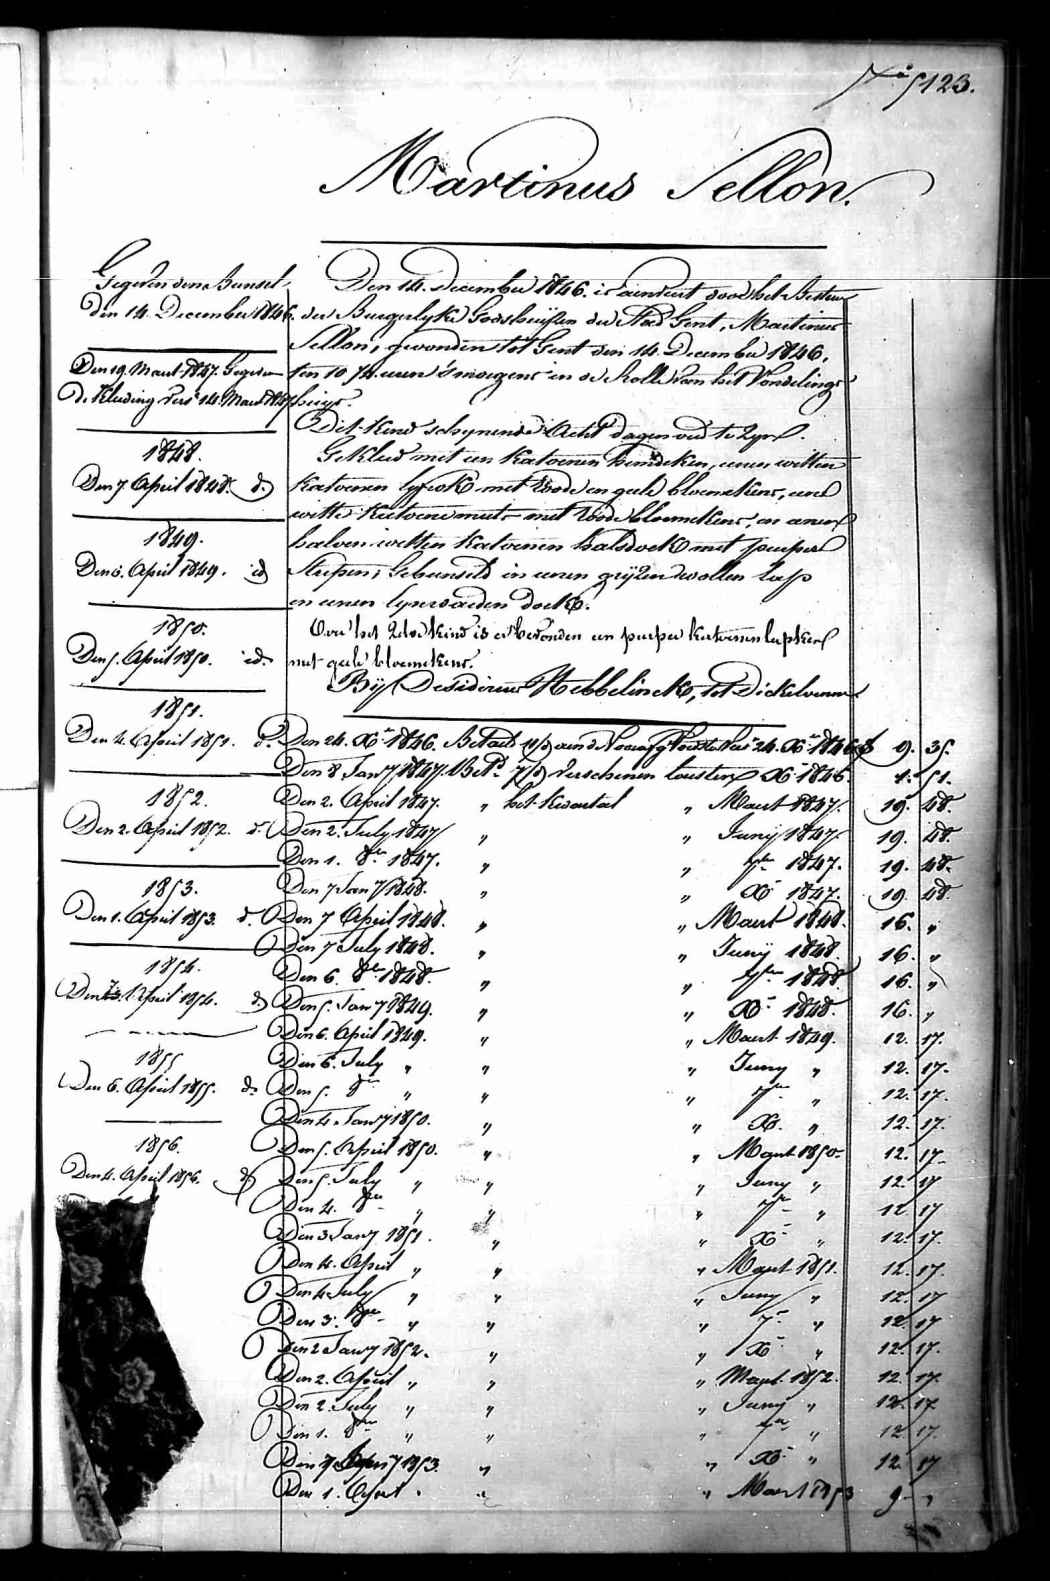 Nº 5123.
Martinus Sellon.
Gegeven den Bunsel
den 14. December 1846.
Den 19. Maert 1847. Gegeven
de Kleding vers. 14. Maert 1847
1848.
Den 7 April 1848. id.
1849.
Den 6. April 1849. id
1850.
Den 5. April 1850. id.
1851.
Den 4. April 1851. d.
1852.
Den 2. April 1852. d.
1853.
Den 1. April 1853. d.
1854.
Den 3. April 1854. d
1855
Den 6. April 1855. d.
1856.
Den 4. April 1856. d
Den 14. December 1846. is aenveert door het Bestuur
der Burgerlyke Godshuijsen der Stad Gent, Martinus
Sellon, gevonden tot Gent den 14. December 1846,
ten 10 3/4 uren 's morgens in de Rolle van het Vondelings
huijs.
Dit kind schynende Acht dagen oud te zyn.
Gekleed met een Katoenen hemdeken, eenen witten
Katoenen lyfrok met roode en geele bloemekens, eene
witte Katoene muts met roode bloemekens, en eenen
halven witten Katoenen halsdoek met purpere
streepen, Gebunseld in eenen gryzen wollen lap
en eenen lynwaeden doek.
Over het zelve kind is er bevonden een purper katoenen lapken
met geele bloemekens.
By Desiderius Hebbelinck, tot Dickelvenne
Den 24. Xr 1846. Betaeld aen de Voorafg. Verscheenen 24. Xr 1846 9. 35.
Den 8 Jany 1847. Betd. 7/d Verschenen lousten Xr 1846. 1. 51.
Den 2. April 1847. " het Kwartael " Maert 1847. 19. 48.
Den 2. July 1847 " " Junij 1847 19. 48.
Den 1. 8er 1847. " " 7er 1847. 19. 48.
Den 7 Jany 1848. " " Xr 1847. 19. 48.
Den 7 April 1848. " " Maert 1848. 16. "
Den 7 July 1848. " " Junij 1848. 16. "
Den 6. 8er 1848. " " 7er 1848. 16. "
Den 5. Jany 1849. " " Xr 1848. 16. "
Den 6. April 1849. " " Maert 1849. 12. 17.
Den 6. July " " " Juny " 12. 17.
Den 5. 8er " " " 7er " 12. 17.
Den 4. Jany 1850. " " Xr " 12. 17.
Den 5. April 1850. " " Maert 1850. 12. 17.
Den 5. July " " " Juny " 12. 17
Den 4. 8er " " " 7er " 12 17
Den 3 Jany 1851. " " Xr " 12. 17.
Den 4. April " " " Maert 1851. 12. 17.
Den 4 July " " " Juny " 12. 17
Den 3. 8er " " " 7r " 12. 17
Den 2 Jany 1852. " " Xr " 12. 17.
Den 2. April " " " Maert 1852. 12. 17.
Den 2. July " " " Juny " 12. 17
Den 1. 8er " " " 7er " 12 17.
Den 7 Jany 1853. " " Xr " 12. 17
Den 1. April " " " Maert 1853 9 "